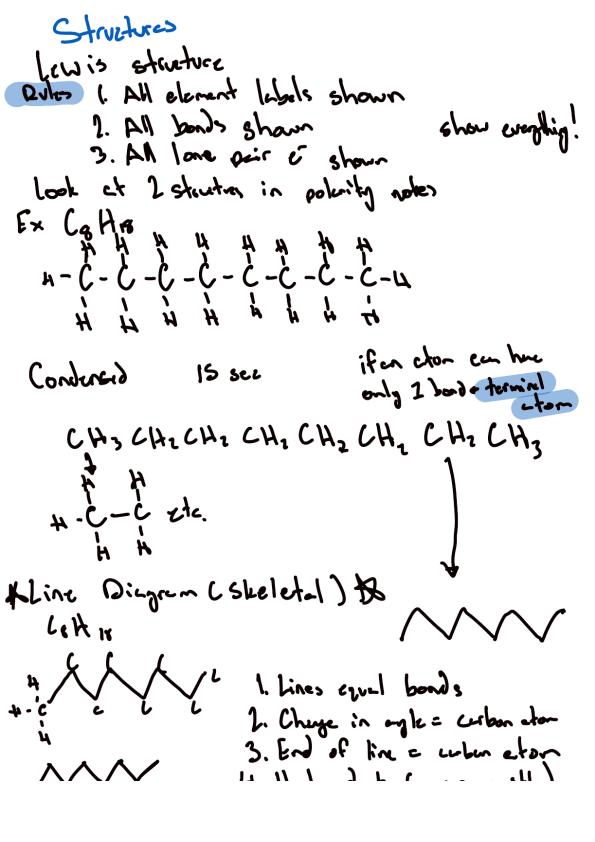 Structures
Lewis structure
Rules 1. All element labels shown
2. All bonds shown show everything!
3. All lone pair e⁻ shown
Look at 2 structures in polarity notes
Ex C₈H₁₈
H H H H H H H H
H-C-C-C-C-C-C-C-C-H
H H H H H H H H
Condensed 15 sec
if an atom can have
only 1 bond = terminal
atom
CH₃ CH₂ CH₂ CH₂ CH₂ CH₂ CH₂ CH₃
H H
H-C-C etc.
H H
Line Diagram (skeletal)
C₈H₁₈
C C C C
H
H-C C C C
H
1. Lines equal bonds
2. Change in angle = carbon atom
3. End of line = carbon atom